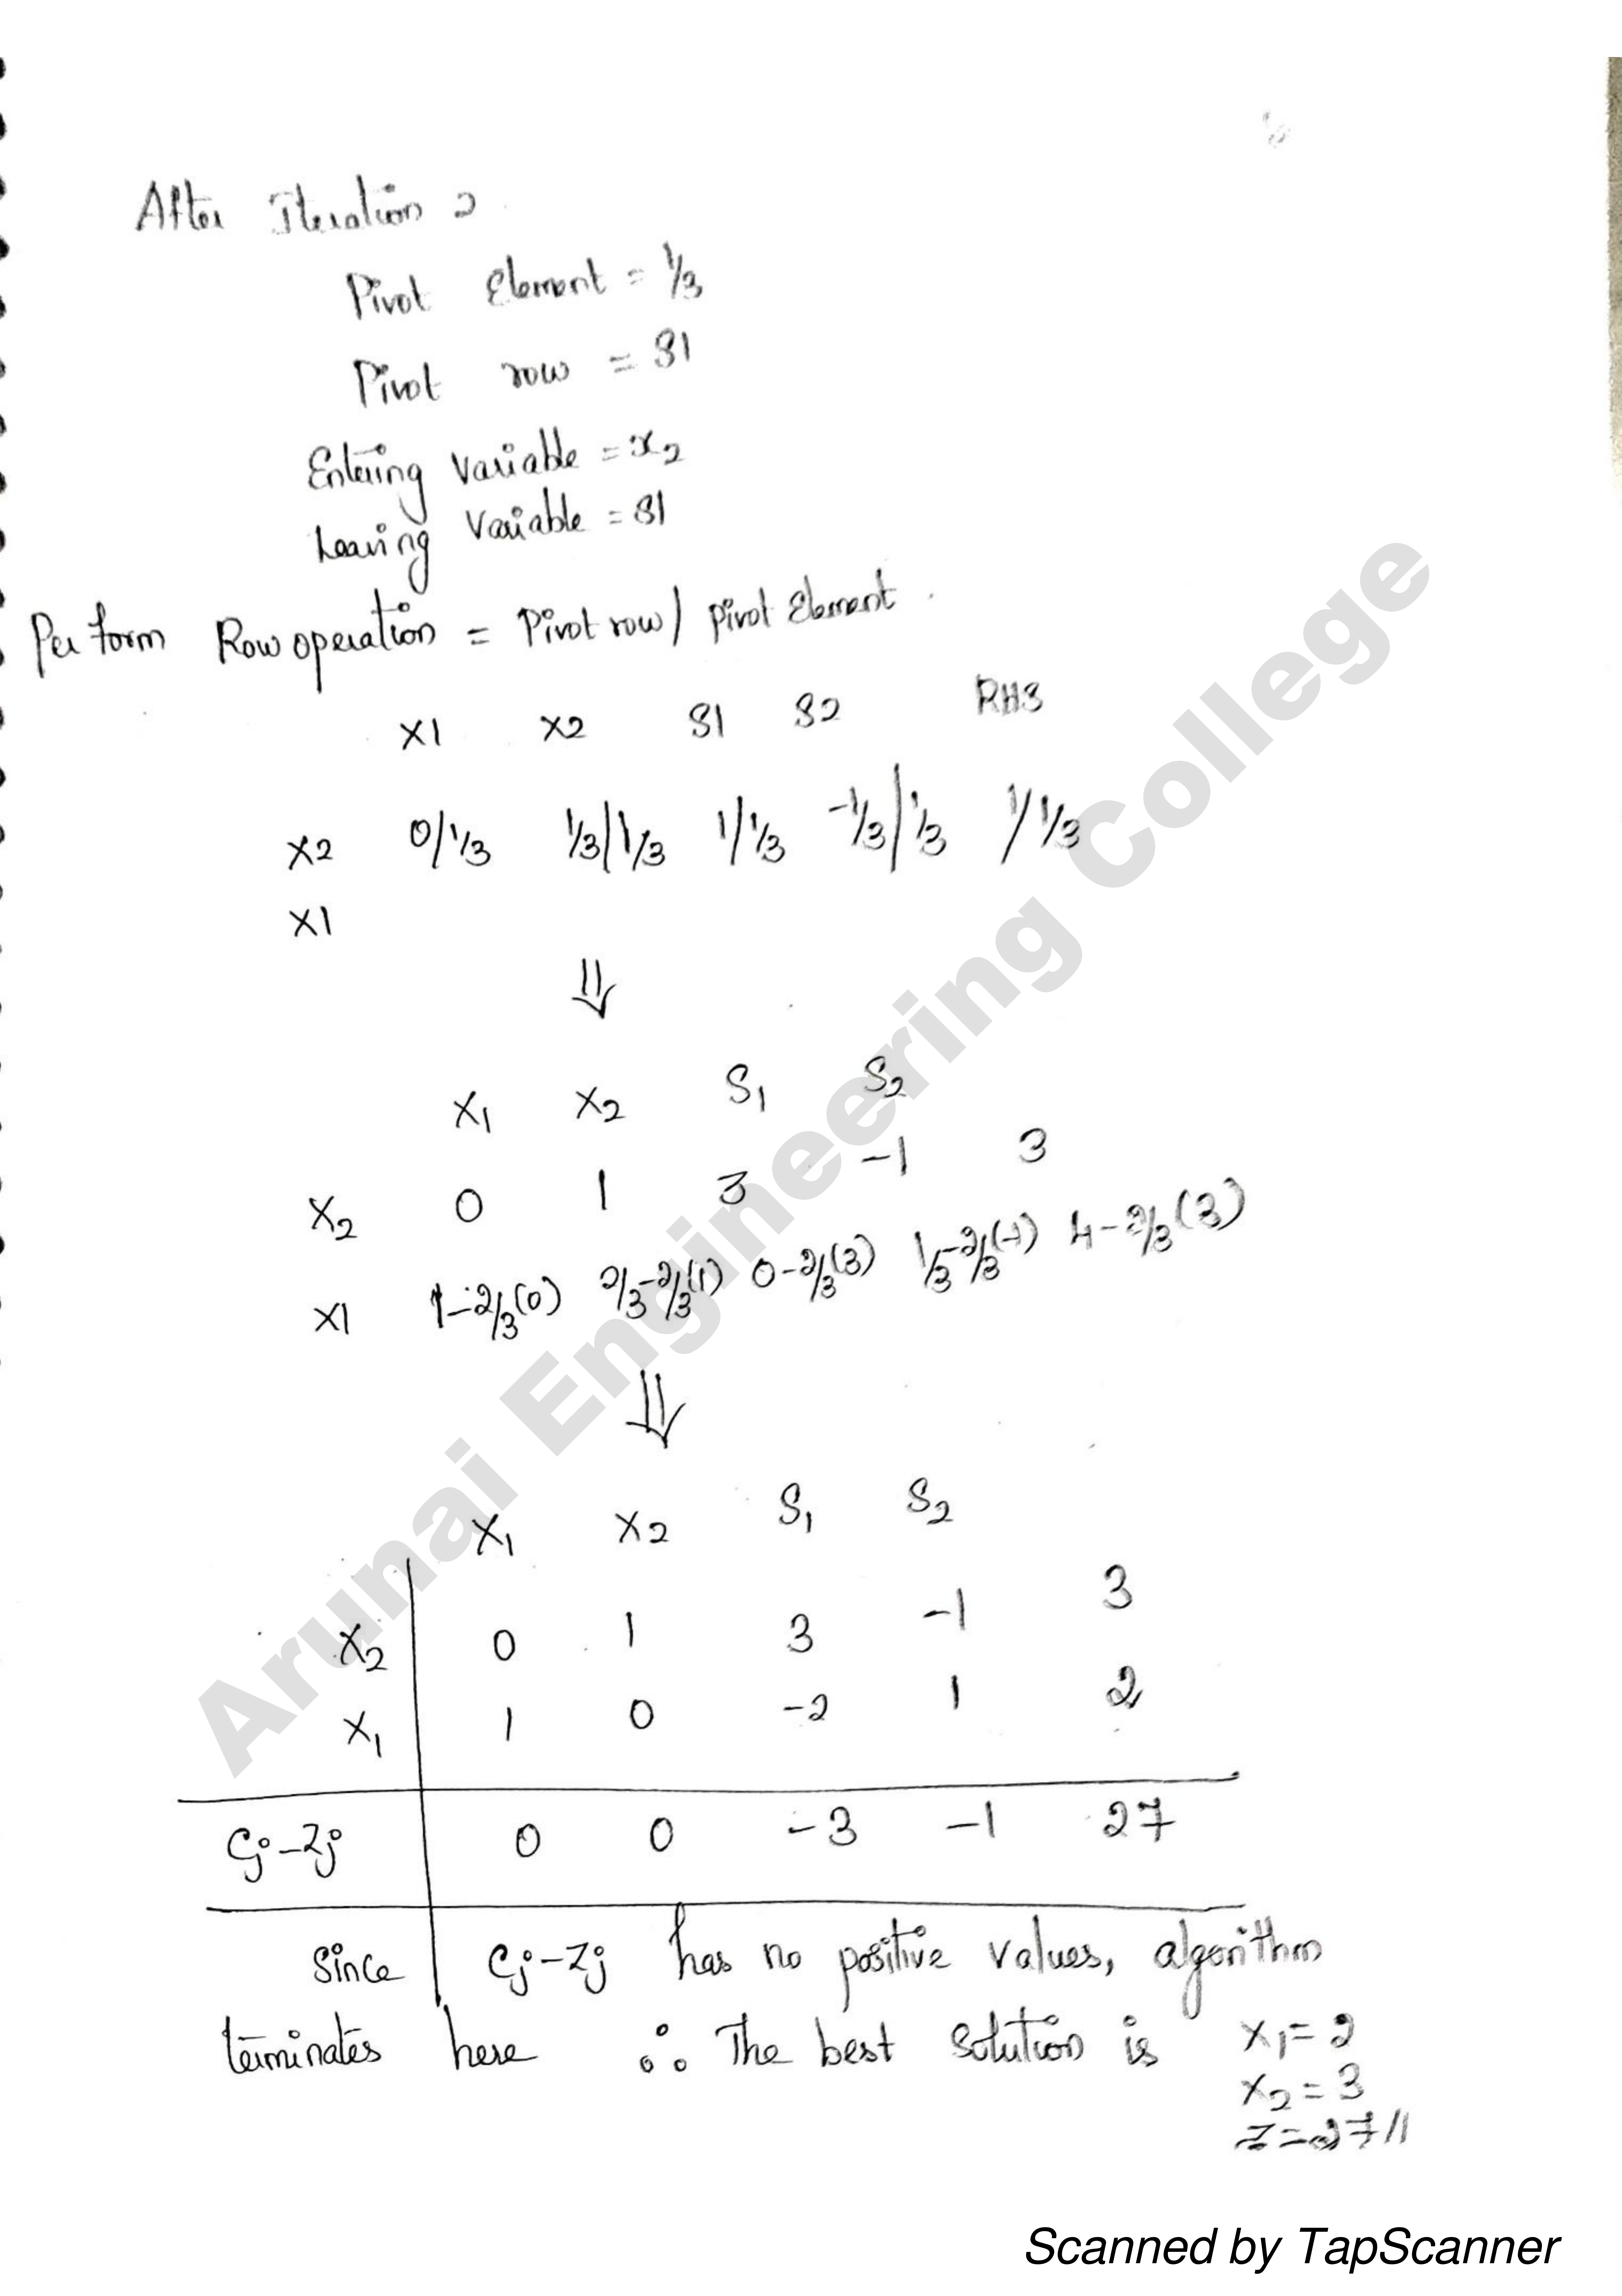 After Iteration 2
Pivot Element = 1/3
Pivot row = S1
Entering Variable = x2
Leaving Variable = S1
Perform Row operation = Pivot row / pivot Element.
X1 X2 S1 S2 RHS
X2 0/1/3 1/3/1/3 1/1/3 -1/3/1/3 1/1/3
X1
⇓
X1 X2 S1 S2
X2 0 1 3 -1 3
X1 1-2/3(0) 2/3-2/3(1) 0-2/3(3) 1/3-2/3(-1) 4-2/3(3)
⇓
X1 X2 S1 S2
X2 0 1 3 -1 3
X1 1 0 -2 1 2
Cj-Zj 0 0 -3 -1 27
Since Cj-Zj has no positive values, algorithm
terminates here ∴ The best solution is X1=2
X2=3
Z=27//
Arunai Engineering College
Scanned by TapScanner